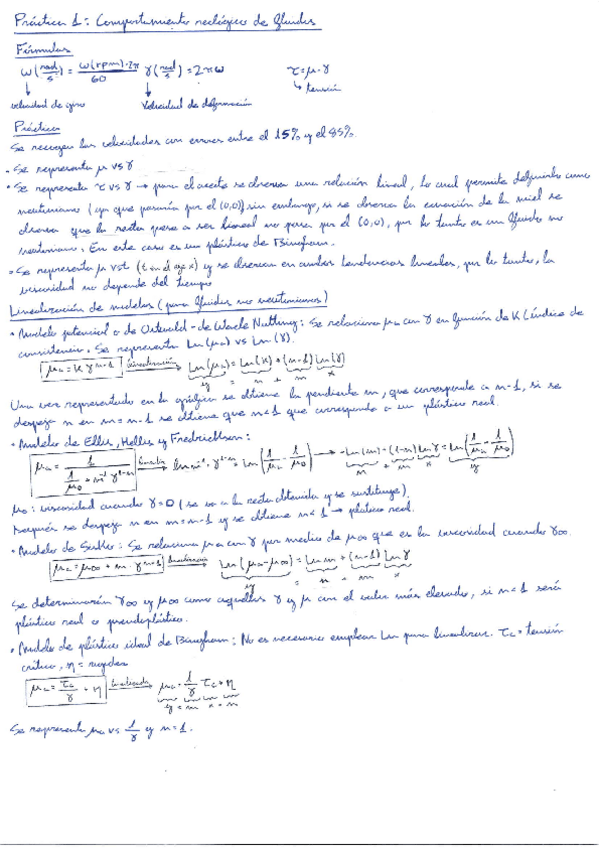 Práctica 1: Comportamiento reológico de fluidos
Fórmulas
ω(rad/s) = ω(rpm)·2π/60   γ(rad/s) = 2πω   τ = μ·γ
velocidad de giro   Velocidad de deformación   tensión
Práctica
Se recogen las velocidades con errores entre el 15% y el 85%.
- Se representa μ vs γ
• Se representa τ vs γ → para el aceite se observa una relación lineal, lo cual permite definirlo como
newtoniano (ya que pasaría por el (0,0)), sin embargo, si se observa la ecuación de la miel se
observa que la recta pese a ser lineal no pasa por el (0,0), por lo tanto es un fluido no
newtoniano. En este caso es un plástico de Bingham.
• Se representa μ vs t (t en el eje x) y se observan en ambos tendencias lineales, por lo tanto, la
viscosidad no depende del tiempo
Linealización de modelos (para fluidos no newtonianos)
• Modelo potencial o de Ostwald-de Waele Nutting: Se relaciona μa con γ en función de K (índice de
consistencia. Se representa Ln(μa) vs Ln(γ).
μa = K γ^n-1   linealización   Ln(μa) = Ln(K) + (n-1) Ln(γ)
y = n + m x
Una vez representado en la gráfica se obtiene la pendiente m, que corresponde a n-1, si se
despeja n en m = n-1 se obtiene que n<1 que corresponde a un plástico real.
• Modelo de Ellis, Hellis y Fredrickson:
μa = 1 / (1/μ0 + m^-1 γ^1-n)   → -Ln(m) + (1-n) Ln γ = Ln(1/μa - 1/μ0)
n + m x   y
μ0: viscosidad cuando γ=0 (se va a la recta obtenida y se sustituye).
Después se despeja n en m = n-1 y se obtiene n<1 → plástico real.
• Modelo de Sisko: Se relaciona μa con γ por medio de μ∞ que es la viscosidad cuando γ∞.
μa = μ∞ + m·γ^n-1   linealización   Ln(μa-μ∞) = Ln m + (n-1) Ln γ
y = n + m x
Se determinarán γ∞ y μ∞ como aquellas γ y μ con el valor más elevado, si n<1 será
plástico real o pseudoplástico.
• Modelo de plástico ideal de Bingham: No es necesario emplear Ln para linealizar. τc = tensión
crítica, η = rigidez
μa = τc/γ + η   linealizado   μa = 1/γ τc + η
y = m x + n
Se representa μa vs 1/γ y n=1.